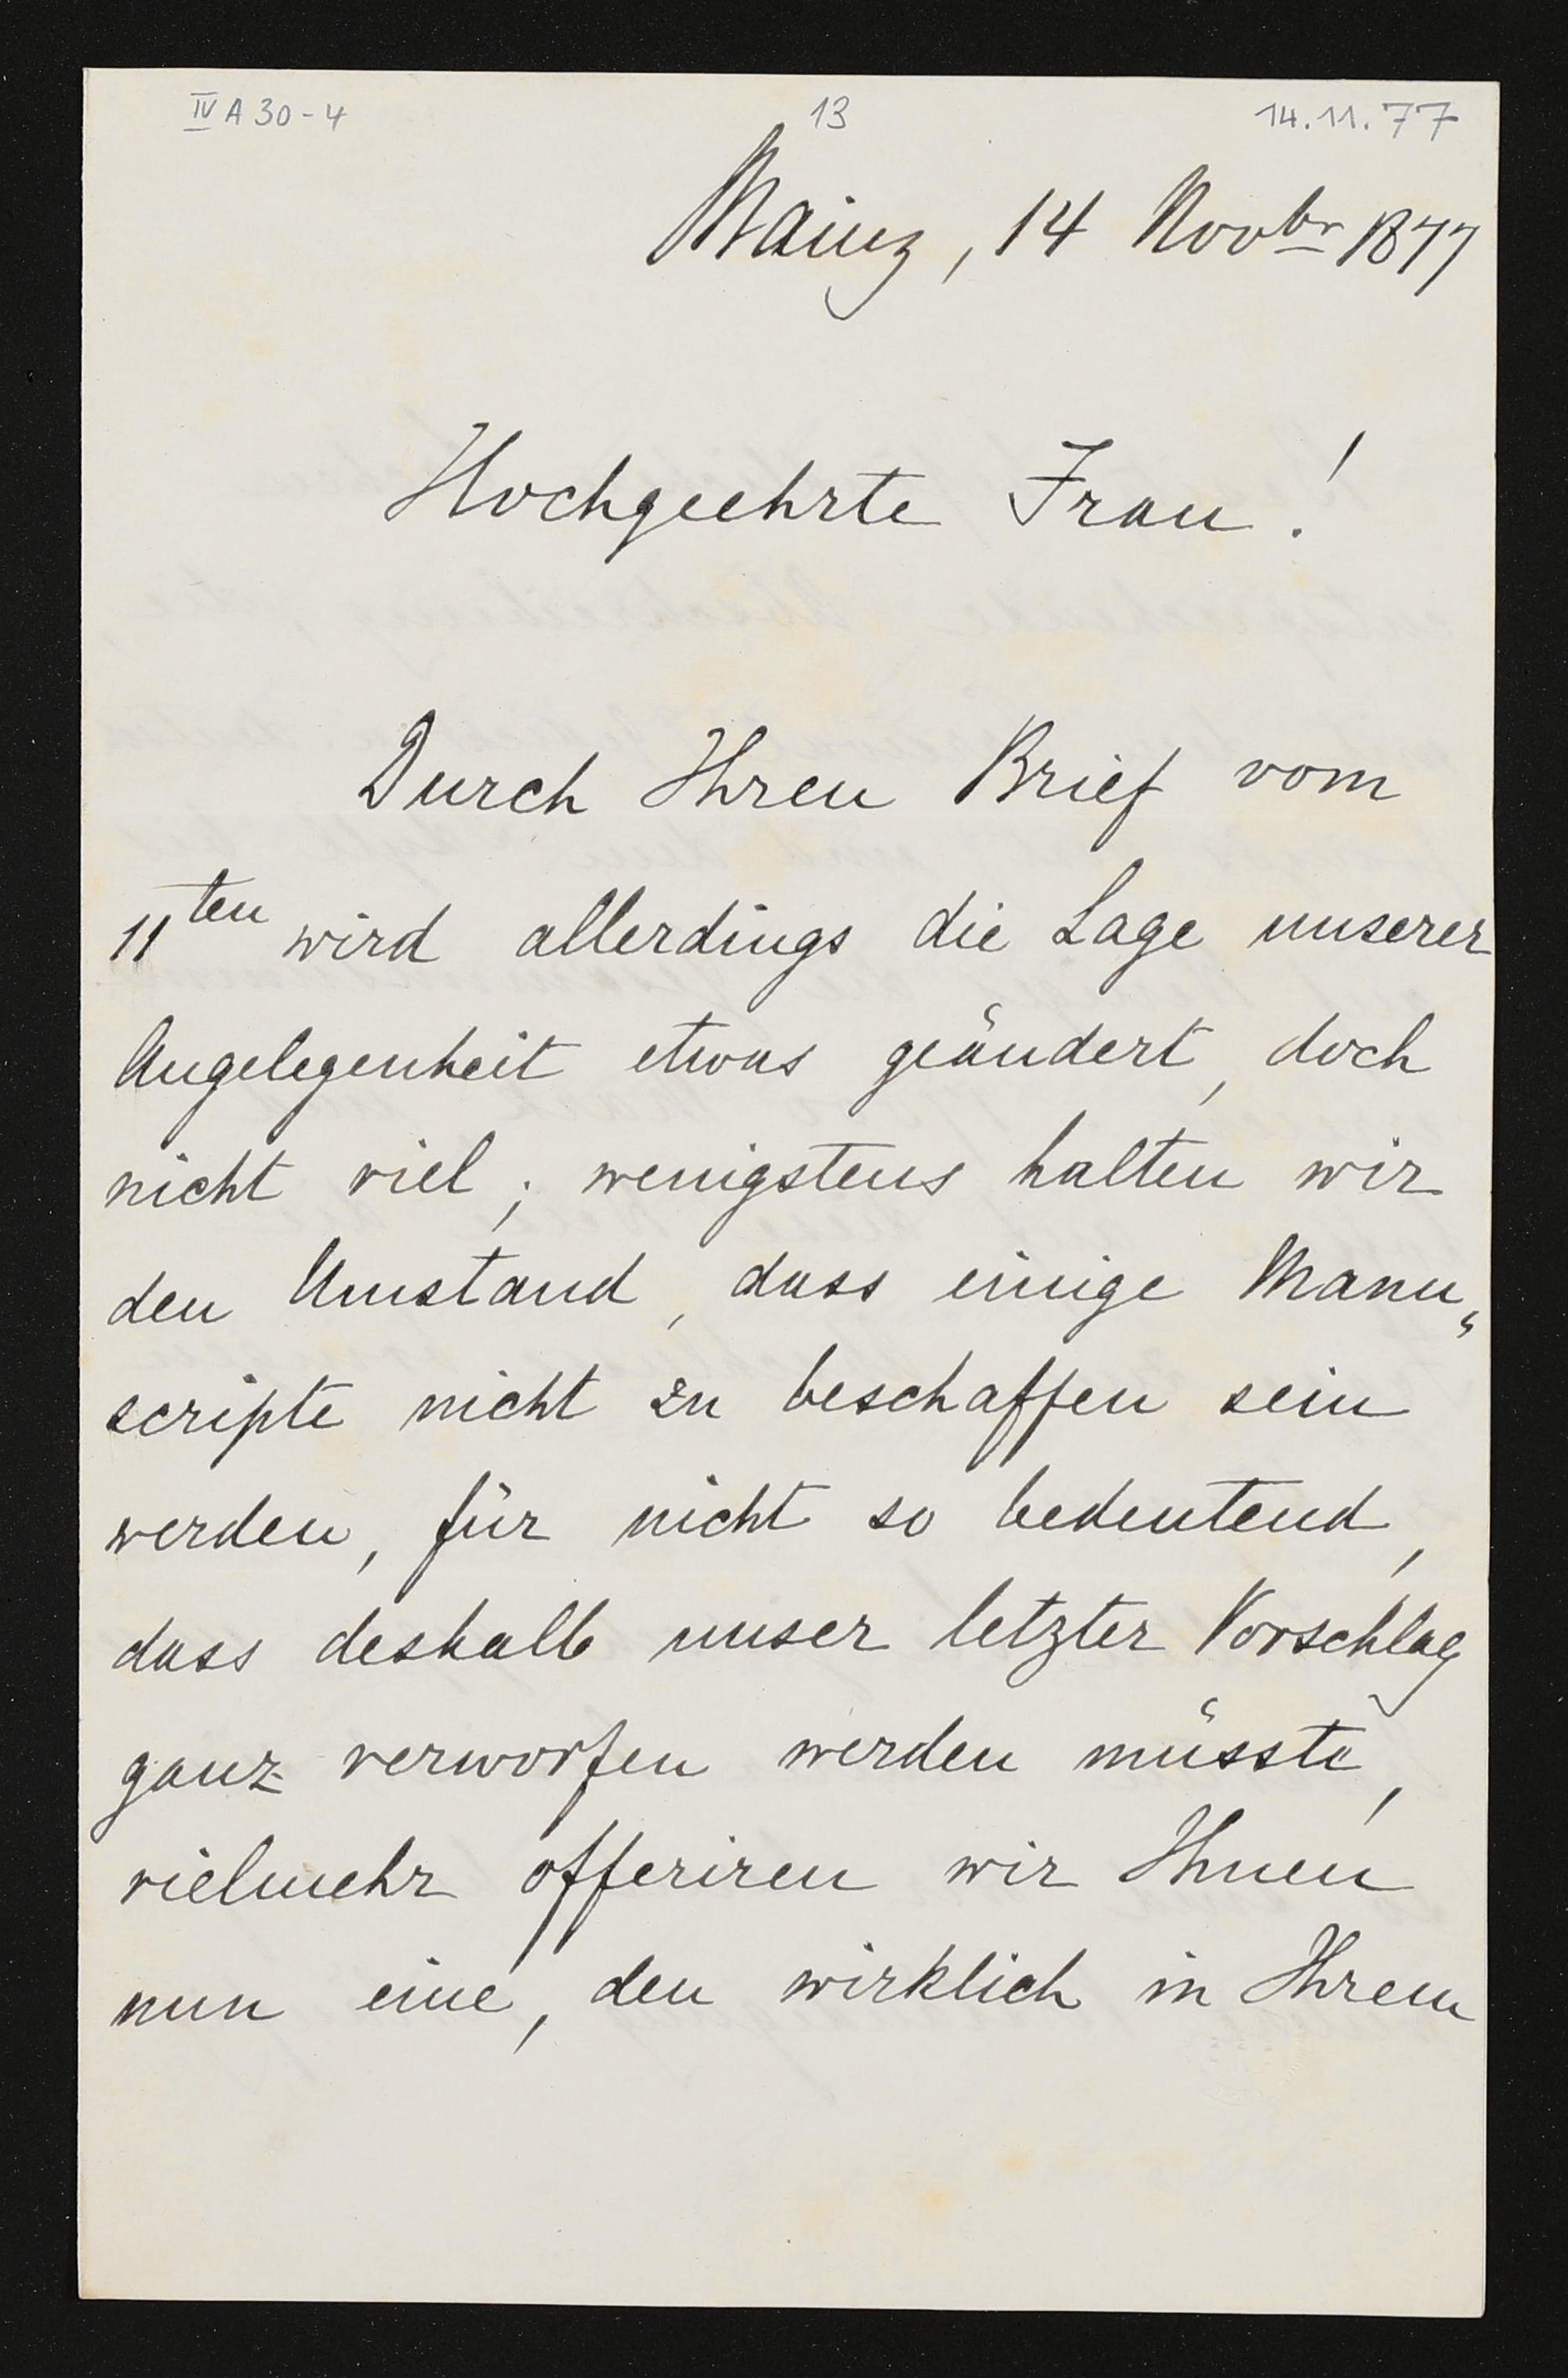 IV A 30-4 13 14.11.77
Mainz, 14 Novbr 1877
Hochgeehrte Frau!
Durch Ihren Brief vom
11ten wird allerdings die Lage unserer
Angelegenheit etwas geändert, doch
nicht viel; wenigstens halten wir
den Umstand, dass einige Manu„
scripte nicht zu beschaffen sein
werden, für nicht so bedeutend,
dass deshalb unser letzter Vorschlag
ganz verworfen werden müsste,
vielmehr offeriren wir Ihnen
nun eine, den wirklich in Ihrem